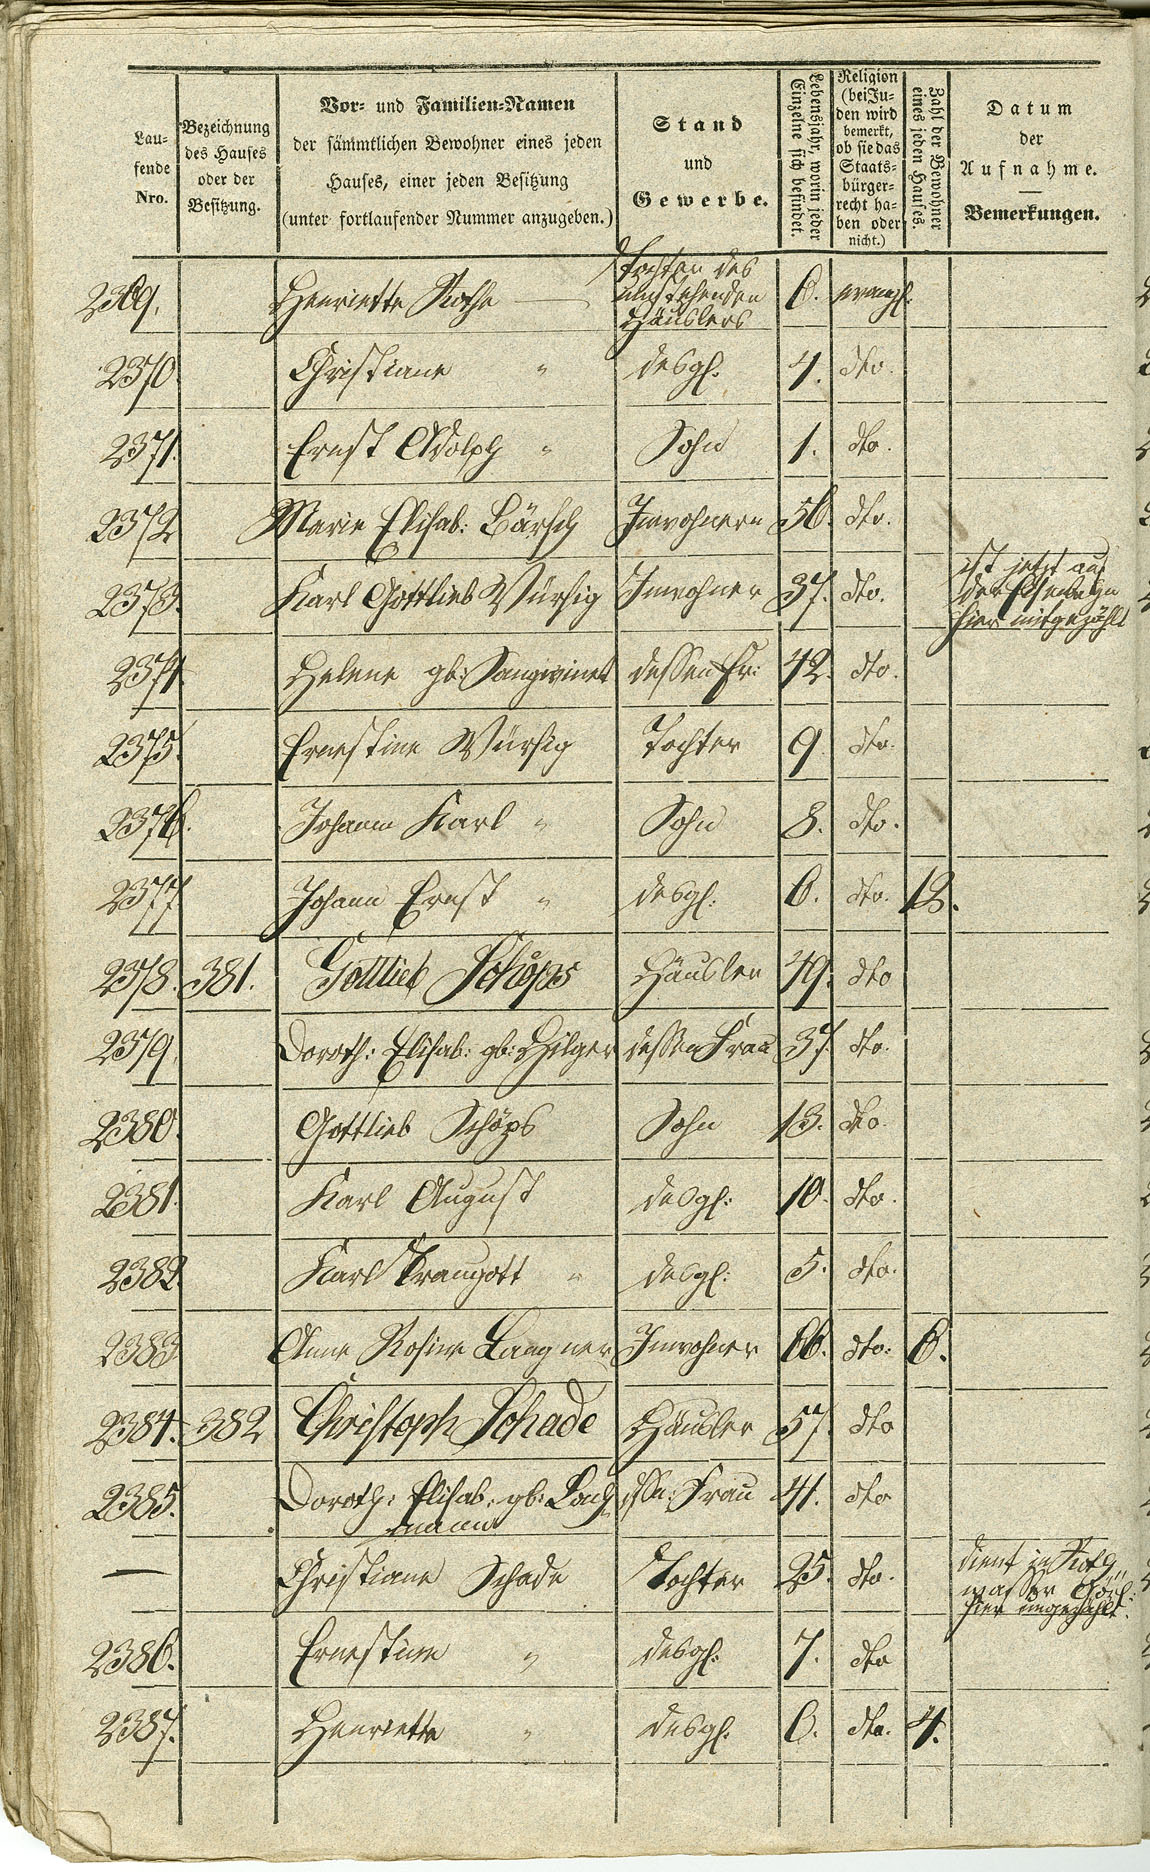 Lau-
fende
Nro.
Bezeichnung
des Hauses
oder der
Besitzung.
Vor- und Familien-Namen
der sämmtlichen Bewohner eines jeden
Hauses, einer jeden Besitzung
(unter fortlaufender Nummer anzugeben.)
Stand
und
Gewerbe.
Lebensjahr, worin jeder
Einzelne sich befindet.
Religion
(bei Ju-
den wird
bemerkt,
ob sie das
Staats-
bürger-
recht ha-
ben oder
nicht.)
Zahl der Bewohner
eines jeden Hauses.
Datum
der
Aufnahme.
Bemerkungen.
Tochter des
umstehenden
Häuslers
2369. Henriette Rothe 6. evangl.
2370 Christiane " desgl. 4. dto.
2371. Ernst Adolph " Sohn 1. dto.
2372 Marie Elisab: Bärsch Inwohnern 56. dto.
ist jetzt auf
der Eisenbahn
hier mitgezählt
2373. Karl Gottlieb Würsig Inwohner 37. dto.
2374. Helene gb: dessen Fr: 42. dto.
2375. Ernestine Würsig Tochter 9. dto.
2376. Johann Karl " Sohn 8. dto.
2377 Johann Ernst " desgl: 6. dto. 12.
2378. 381. Gottlieb Schöps Häusler 49. dto
2379. Doroth: Elisab: gb: Hilger dessen Frau 37. dto.
2380. Gottlieb Schöps Sohn 13. dto.
2381. Karl August desgl: 10. dto.
2382. Karl Traugott " desgl: 5. dto.
2383 Anne Rosine Langner Inwohner 66. dto: 6.
2384. 382 Christoph Schade Häusler 57. dto
2385. Doroth: Elisab. gb: Bach dssn: Frau 41. dto
mann
— Christiane Schade Tochter 25. dto.
dient in
hier ungezählt.
2386. Ernestine " desgl: 7. dto
2387. Henriette " desgl: 6. dto. 4.